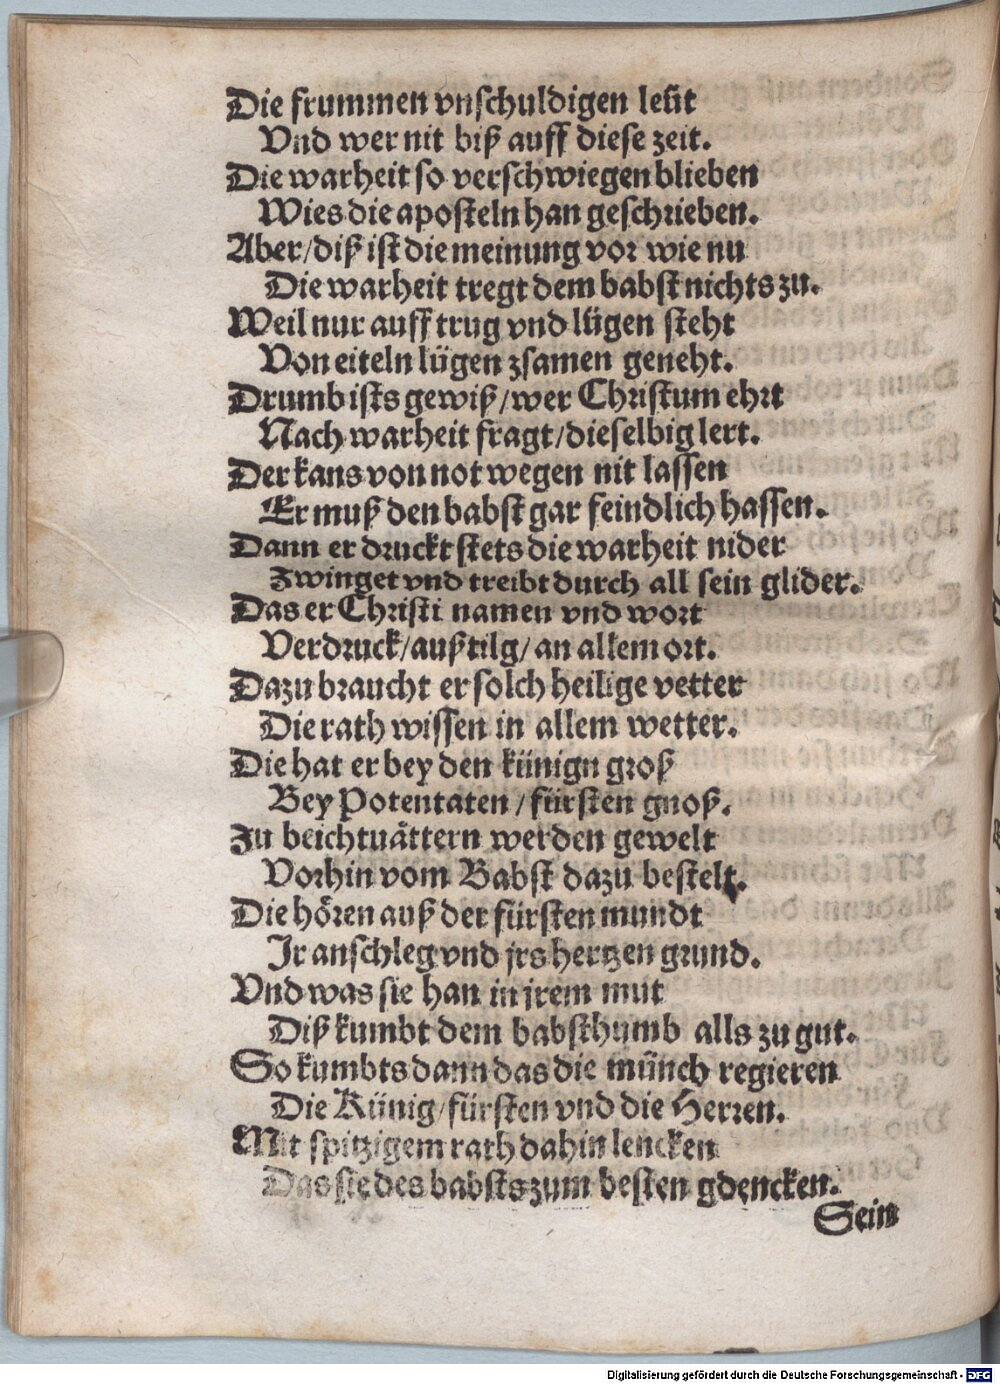 Die frummen vnschuldigen leüt
Vnd wer nit biß auff diese zeit.
Die warheit so verschwiegen blieben
Wies die aposteln han geschrieben.
Aber/diß ist die meinung vor wie nu
Die warheit tregt dem babst nichts zu.
Weil nur auff trug vnd lügen steht
Von eiteln lügen zsamen geneht.
Drumb ists gewiß/wer Christum ehrt
Nach warheit fragt/dieselbig lert.
Der kans von not wegen nit lassen
Er muß den babst gar feindlich hassen.
Dann er druckt stets die warheit nider
Zwinget vnd treibt durch all sein glider.
Das er Christi namen vnd wort
Verdruck/außtilg/an allem ort.
Dazu braucht er solch heilige vetter
Die rath wissen in allem wetter.
Die hat er bey den künign groß
Bey Potentaten/fürsten gnoß.
Zu beichtuåttern werden gewelt
Vorhin vom Babst dazu bestelt.
Die hören auß der fürsten mundt
Ir anschleg vnd jrs hertzen grund.
Vnd was sie han in jrem mut
Diß kumbt dem babsthumb alls zu gut.
So kumbts dann das die münch regieren
Die Künig/fürsten vnd die Herren.
Mit spitzigem rath dahin lencken
Das sie des babsts zum besten gdencken.
Sein
Digitalisierung gefördert durch die Deutsche Forschungsgemeinschaft - DFG